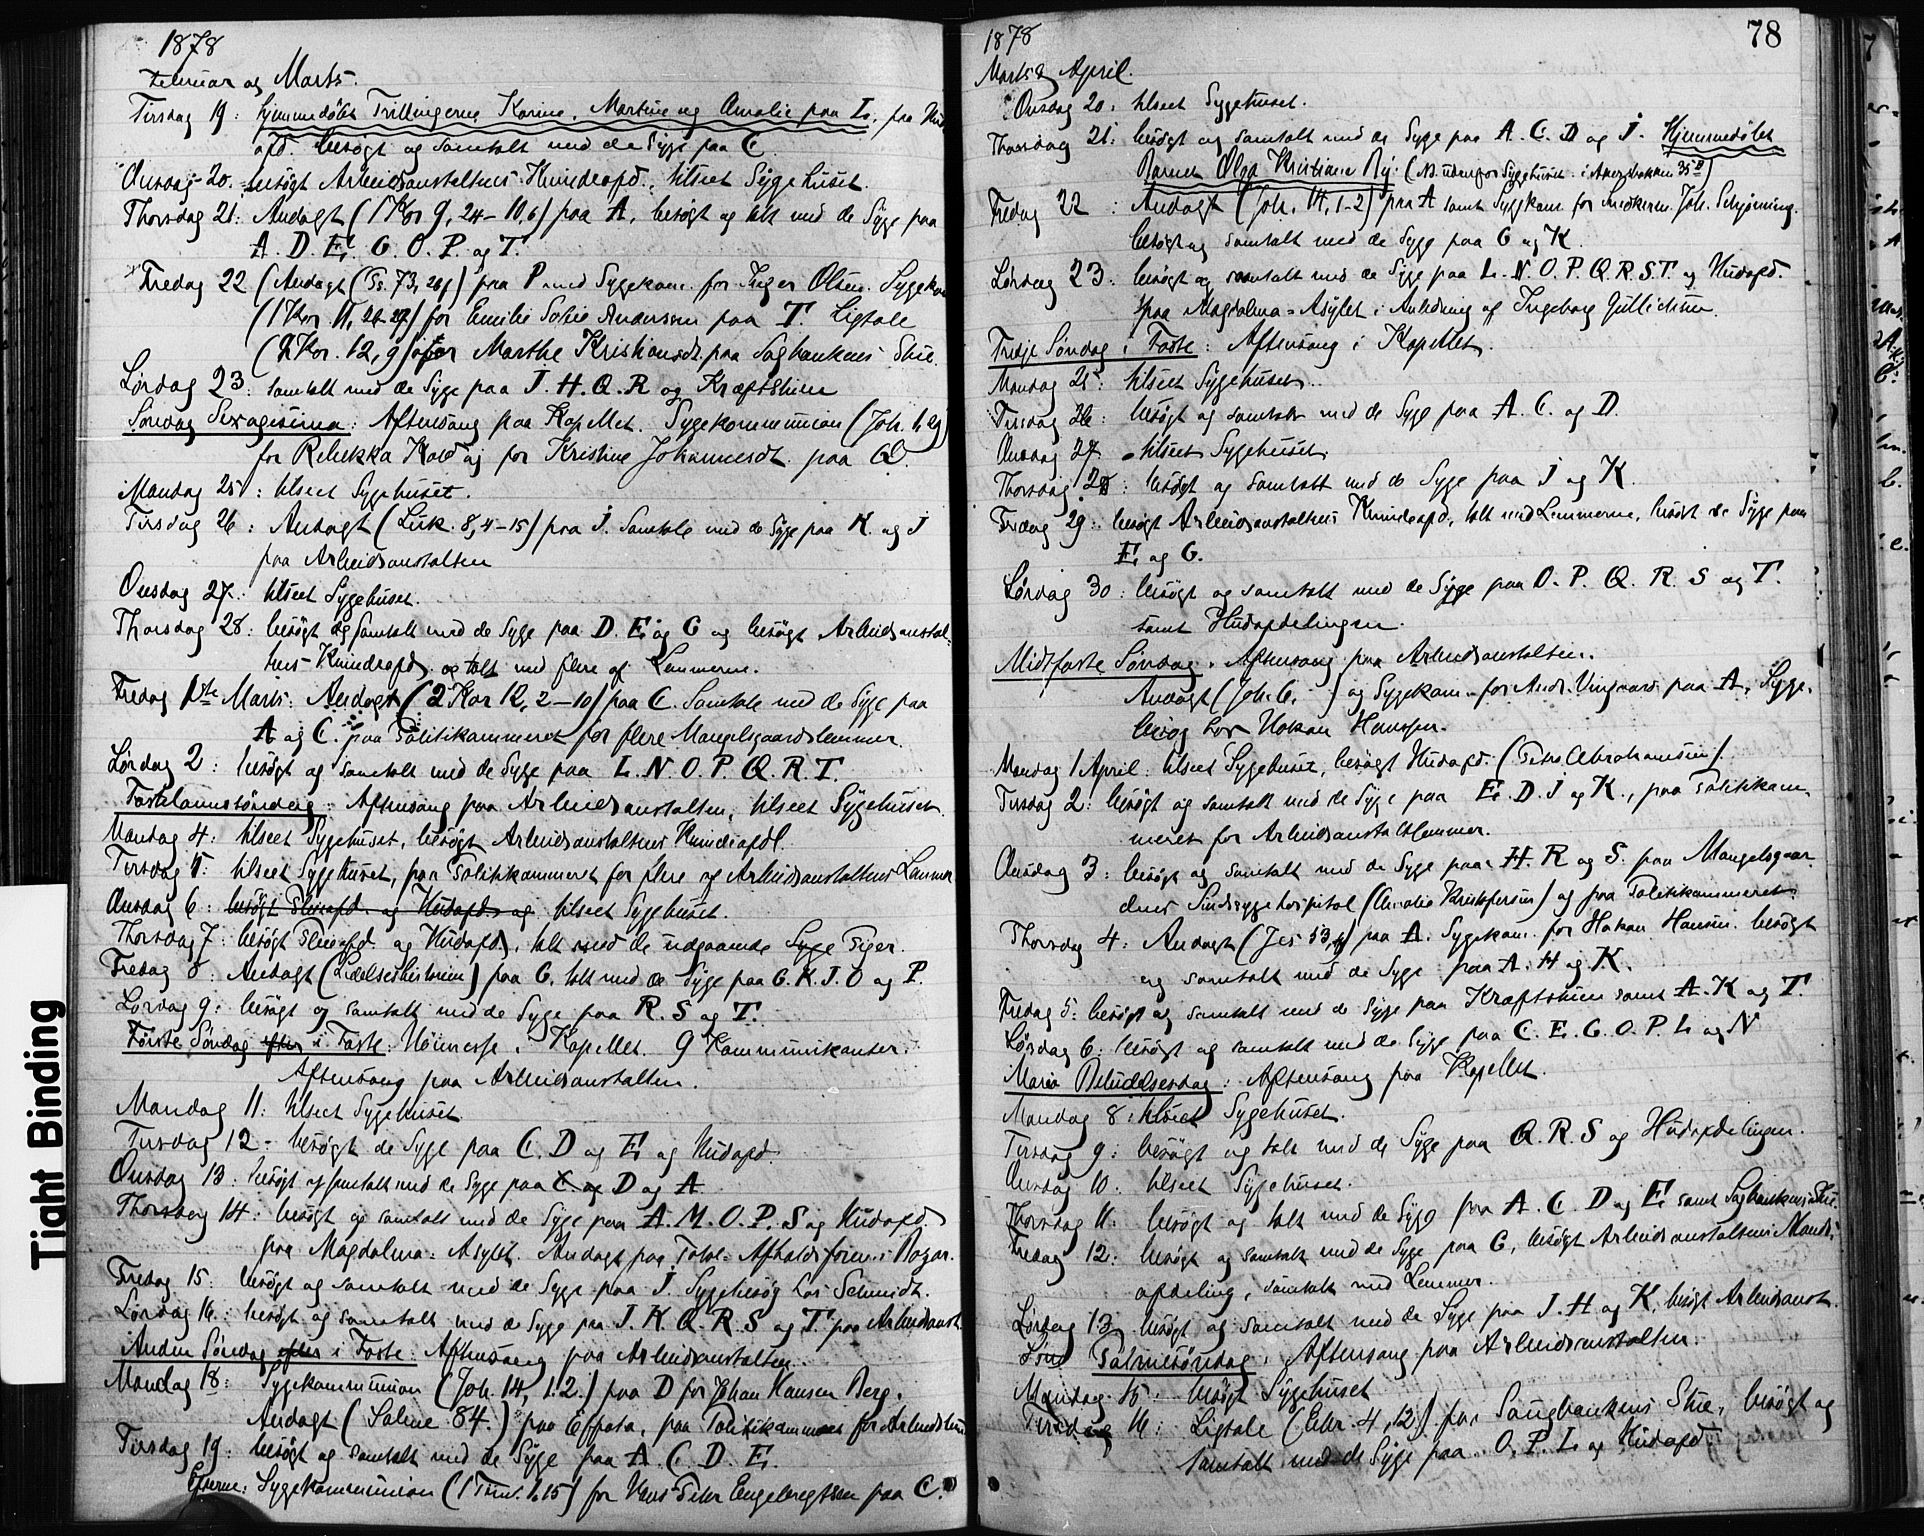 1878
Februar og Marts.
Tirsdag 19: hjemmedøbt Trillingerne Karine, Martine og Amalie paa L. paa Hud
afd. besøgt og samtalt med de Syge paa C
Onsdag 20. besøgt Arbeidsanstaltens Kvindeafd., tilseet Sygehuset.
Thorsdag 21: Andagt (1 Kor 9, 24-10,6) paa A, besøgt og talt med de Syge paa
A. D. E. G. O. P. og T.
Fredag 22 (Andagt (Ps. 73, 26) paa P med Sygekom. for Inger Olsen. Sygekom
(1 Kor 11, 26-29) for Emilie Sofie Andersen paa T. Ligtale
(2 Kor. 12, 9) over Marthe Kristiansdt. paa Sagbankens Stue.
Lørdag 23: samtalt med de Syge paa J. H. Q. R og Kræftstuen
Søndag Sexagesima: Aftensang paa Kapellet. Sygekommunion (Joh. 1, 29)
for Rebekka Kold og for Kristine Johannesdt. paa Q.
Mandag 25: tilseet Sygehuset.
Tirsdag 26: Andagt (Luk. 8, 4-15) paa J. Samtale med de Syge paa K. og J
paa Arbeidsanstalten
Onsdag 27: tilseet Sygehuset.
Thorsdag 28: besøgt og samtalt med de Syge paa D. E og G og besøgt Arbeidsanstal-
tens Kvindeafd. og talt med flere af Lemmerne.
Fredag 1ste Marts: Andagt (2 Kor 12, 2-10) paa C. Samtale med de Syge paa
A og C. paa Politikammeret for flere Mangelsgaardslemmer.
Lørdag 2: besøgt og samtalt med de Syge paa L. N O. P Q. R. T.
Fastelavnssøndag: Aftensang paa Arbeidsanstalten, tilseet Sygehuset
Mandag 4: tilseet Sygehuset, besøgt Arbeidsanstaltens Kvindeafd.
Tirsdag 5: tilseet Sygehuset, paa Politikammeret for flere af Arbeidsanstaltens Lemmer
Onsdag 6: besøgt Pleieafd. og Hudafd. og tilseet Sygehuset.
Thorsdag 7: besøgt Pleieafd og Hudafd., talt med de udgaaende Syge Piger.
Fredag 8: Andagt (Lidelseshistorien) paa G, talt med de Syge paa G. K. J. O og P.
Lørdag 9: besøgt og samtalt med de Syge paa R. S og T.
Første Søndag efter i Faste: Høimesse i Kapellet. 9 Kommunikanter.
Aftensang paa Arbeidsanstalten.
Mandag 11: tilseet Sygehuset
Tirsdag 12: besøgt de Syge paa C. D og E og Hudafd.
Onsdag 13: besøgt og samtalt med de Syge paa C. og D og A
Thorsdag 14: besøgt og samtalt med de Syge paa A. M. O. P. S og Hudafd.
paa Magdalena-Asylet. Andagt paa Total-Afholdsforen.s Bazar.
Fredag 15: besøgt og samtalt med de Syge paa J. Sygebesøg hos Schmidt.
Lørdag 16: besøgt og samtalt med de Syge paa J. K. Q. R. S og T. paa Arbeidsanst.
Anden Søndag efter i Faste: Aftensang paa Arbeidsanstalten.
Mandag 18: Sygekommunion (Joh. 14, 1. 2.) paa D for Johan Hansen Berg.
Andagt (Salme 84.) paa Effata, paa Politikammeret for Arbeidslem
Tirsdag 19: besøgt og samtalt med de Syge paa A. C. D. E.
Efterm: Sygekommunion (1 Tim. 1, 15) for Hans Peter Engebregtsen paa C.
1878
78
Marts & April.
Onsdag 20: tilseet Sygehuset.
Thorsdag 21: besøgt og samtalt med de Syge paa A. C. D og J. Hjemmedøbt
Barnet Olga Kristiane Ry. (NB. udenfor Sygehuset i Akersbakken 35 B)
Fredag 22: Andagt (Joh. 14, 1-2) paa A samt Sygekom. for Snedkersv. Joh. Schjørning.
besøgt og samtalt med de Syge paa G og K.
Lørdag 23: besøgt og samtalt med de Syge paa L. N. O. P. Q. R. S. T. og Hudafd.
paa Magdalena-Asylet i Anledning af Ingeborg Gullichsen.
Tredje Søndag i Faste: Aftensang i Kapellet.
Mandag 25: tilseet Sygehuset.
Tirsdag 26: besøgt og samtalt med de Syge paa A. C. og D.
Onsdag 27 tilseet Sygehuset.
Thorsdag 28: besøgt og samtalt med de Syge paa J og K.
Fredag 29: besøgt Arbeidsanstaltens Kvindeafd., talt med Lemmerne, besøgt de Syge paa
E og G.
Lørdag 30: besøgt og samtalt med de Syge paa O. P. Q. R. S og T.
samt Hudafdelingen.
Midfaste Søndag. Aftensang paa Arbeidsanstalten.
Andagt (Joh. 6, ) og Sygekom. for Andr. Vingaard paa A. Syge-
besøg hos Hakan Hansen.
Mandag 1 April: tilseet Sygehuset, besøgt Hudafd. (Petra Abrahamsen).
Tirsdag 2: besøgt og samtalt med de Syge paa E. D. J og K., paa Politikam
meret for Arbeidsanstaltslemmer.
Onsdag 3: besøgt og samtalt med de Syge paa H. R og S. paa Mangelsgaar
dens Sindssygehospital (Amalie Kristofersen) og paa Politikammeret
Thorsdag 4: Andagt (Jes 53, 4) paa A. Sygekom. for Hakan Hansen. besøgt
og samtalt med de Syge paa A. H og K.
Fredag 5: besøgt og samtalt med de Syge paa Kræftstuen samt A. K og T.
Lørdag 6: besøgt og samtalt med de Syge paa C. E. G. O. P. L og N
Mariæ Bebudelsesdag: Aftensang paa Kapellet.
Mandag 8: tilseet Sygehuset.
Tirsdag 9: besøgt og talt med de Syge paa Q. R. S og Hudafdelingen.
Onsdag 10: tilseet Sygehuset.
Thorsdag 11: besøgt og talt med de Syge paa A. C. D og E samt Sagbankens Stue.
Fredag 12: besøgt og samtalt med de Syge paa G, besøgt Arbeidsanstaltens Mands-
afdeling, samtalt med Lemmer.
Lørdag 13 besøgt og samtalt med de Syge paa J. H og K, besøgt Arbeidsanst.
Palmesøndag: Aftensang paa Arbeidsanstalten.
Mandag 15: besøgt Sygehuset
Tirsdag 16: Ligtale (Ebr. 4, 12.) paa Saugbankens Stue, besøgt og
samtalt med de Syge paa O. P. L og Hudafd
Tight Binding